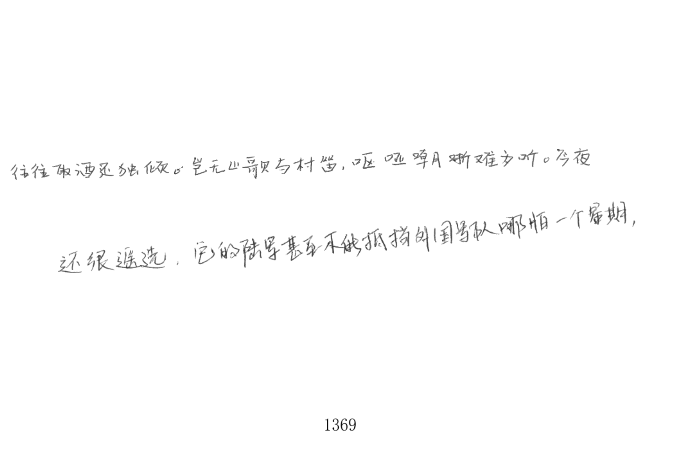 往往取酒还独倾。岂无山歌与村笛,呕哑啁哳难为听。今夜
还很遥远.它的陆军甚至不能抵挡外国军队哪怕一个星期,
1369